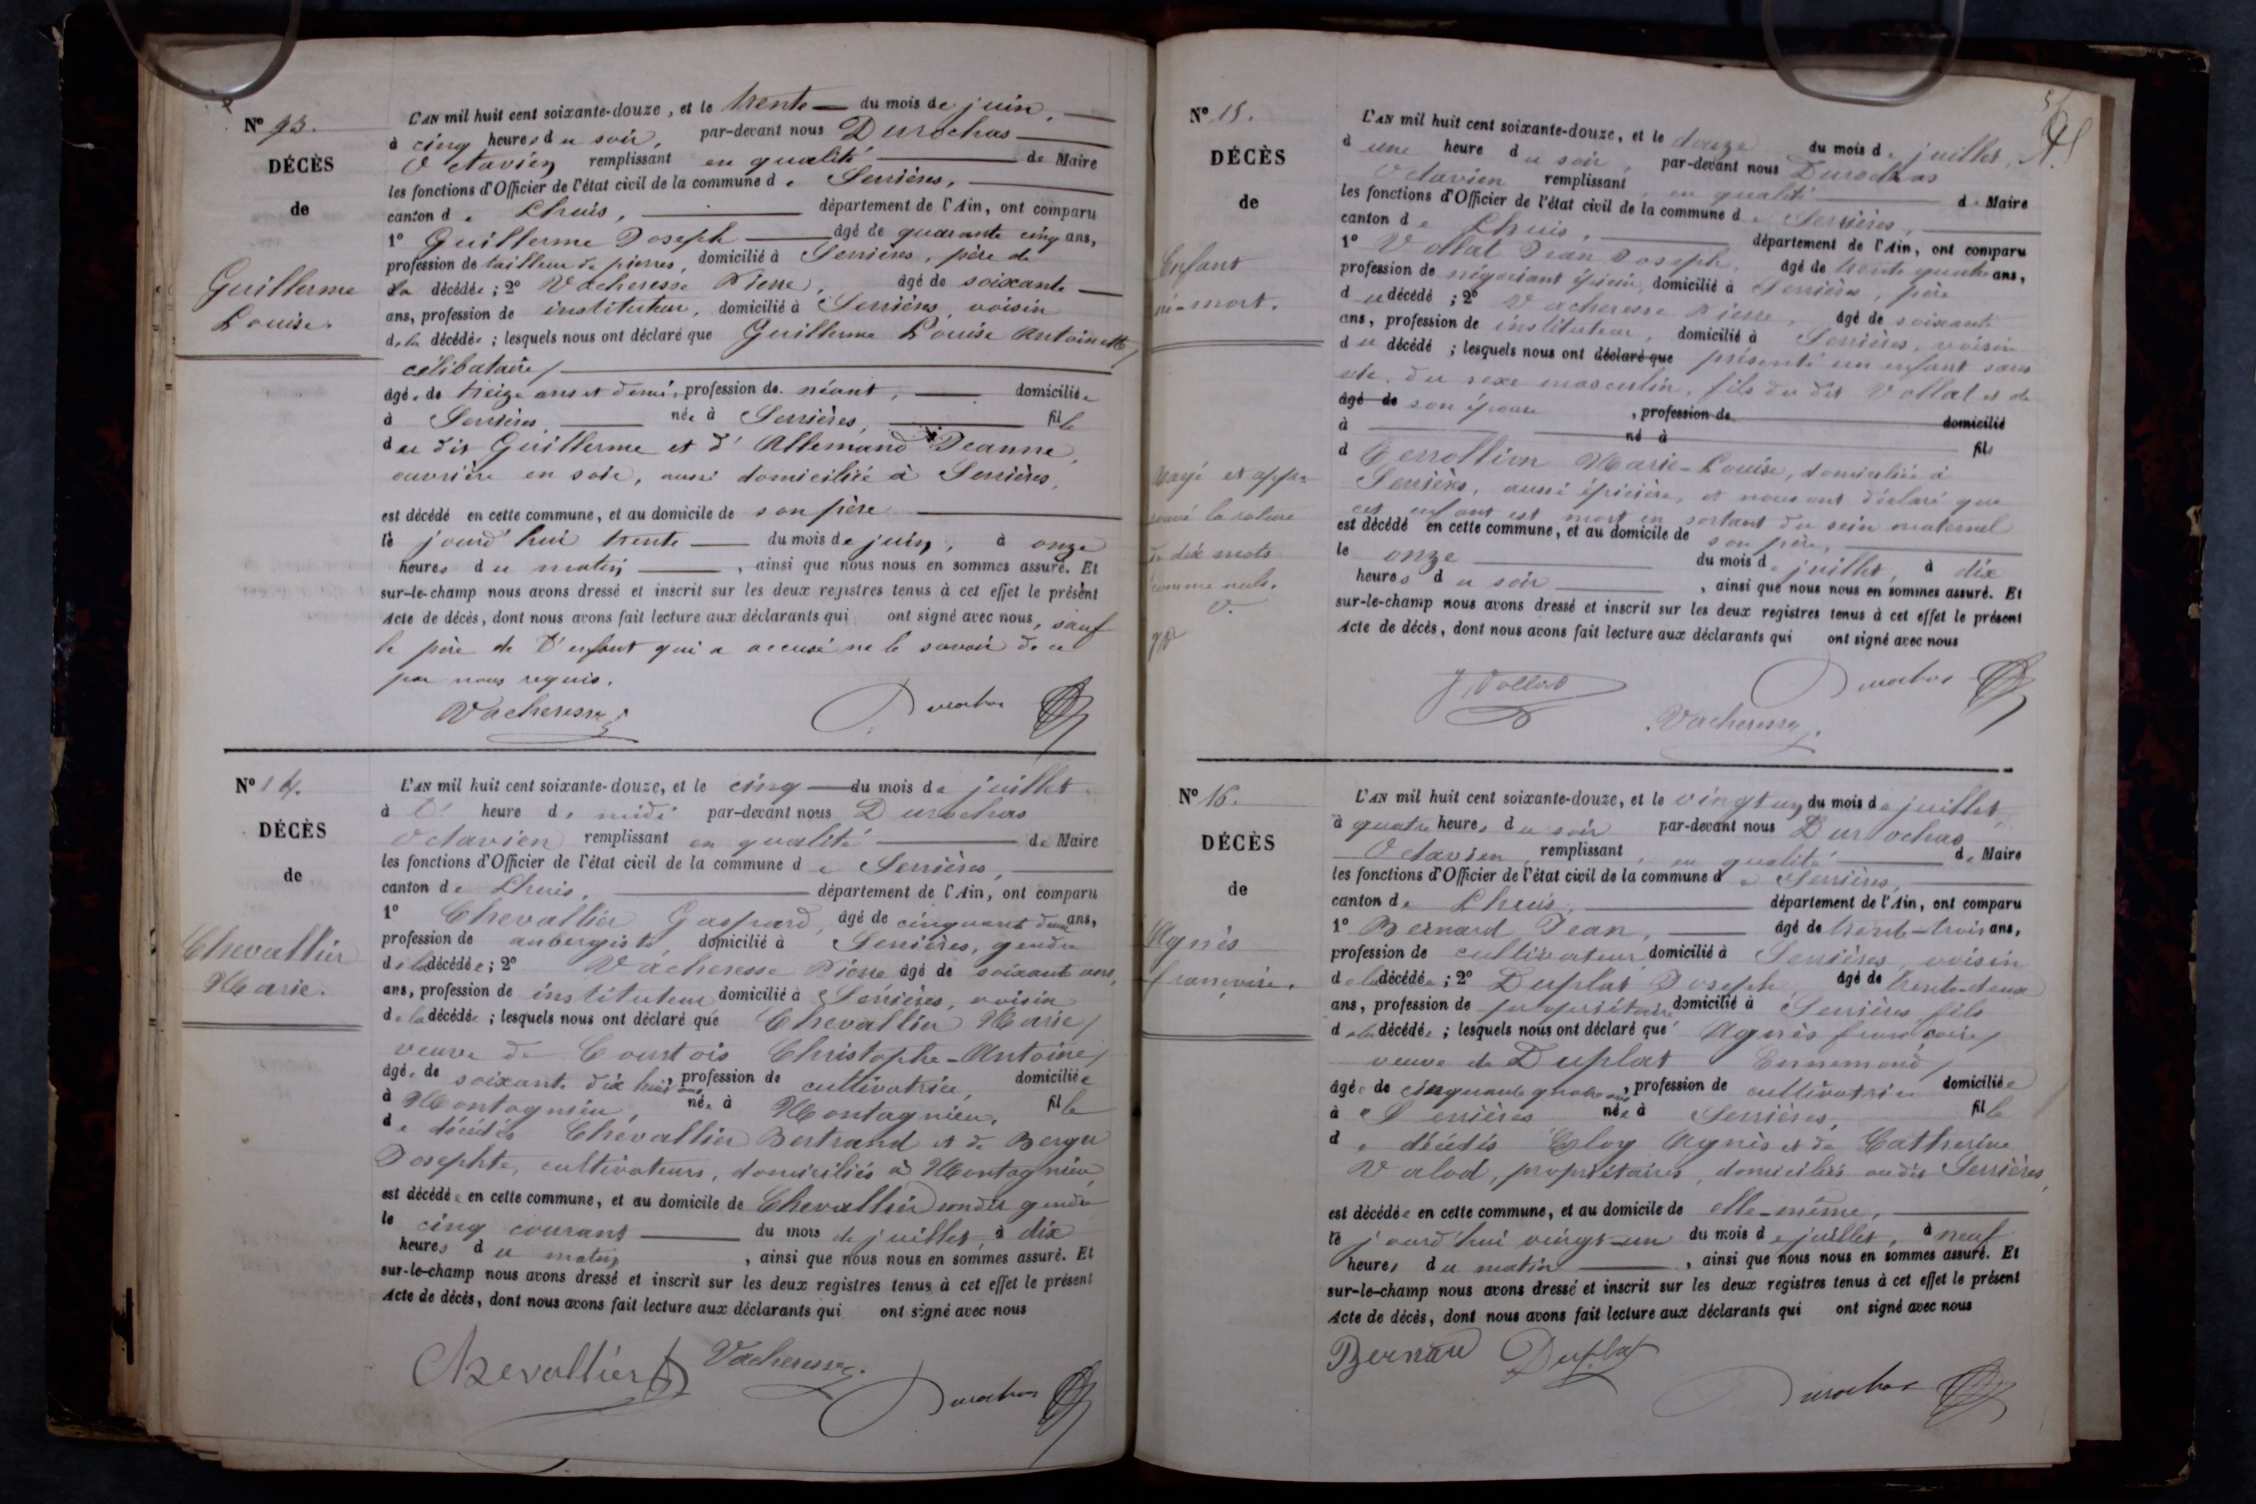 N° 13.
DÉCÈS
de
Guillerme
Louise.
L'AN mil huit cent soixante-douze, et le trente du mois de juin,
à cinq heures du soir, par-devant nous Durochas
Octavien remplissant en qualité de Maire
les fonctions d'Officier de l'état civil de la commune de Serrières,
canton de Lhuis, département de l'Ain, ont comparu
1° Guillerme Joseph âgé de quarante cinq ans,
profession de tailleur de pierres, domicilié à Serrières, père de
la décédée ; 2° Vacheresse Pierre, âgé de soixante
ans, profession de instituteur, domicilié à Serrières, voisin
de la décédée ; lesquels nous ont déclaré que Guillerme Louise Antoinette
célibataire
âgée de treize ans et demi, profession de néant, domiciliée
à Serrières, née à Serrières, fille
du dit Guillerme et d'Allemand Jeanne,
ouvrière en soie, aussi domiciliée à Serrières,
est décédé en cette commune, et au domicile de son père
le jourd'hui trente du mois de juin, à onze
heures du matin, ainsi que nous nous en sommes assuré. Et
sur-le-champ nous avons dressé et inscrit sur les deux registres tenus à cet effet le présent
Acte de décès, dont nous avons fait lecture aux déclarants qui ont signé avec nous, sauf
le père de l'enfant qui a accusé ne le savoir de ce
par nous requis.
Vacheresse Durochas
N° 14.
DÉCÈS
de
Chevallier
Marie.
L'AN mil huit cent soixante-douze, et le cinq du mois de juillet
à l' heure de midi par-devant nous Durochas
Octavien remplissant en qualité de Maire
les fonctions d'Officier de l'état civil de la commune de Serrières,
canton de Lhuis, département de l'Ain, ont comparu
1° Chevallier Gaspard, âgé de cinquant deux ans,
profession de aubergiste, domicilié à Serrières, gendre
de la décédée ; 2° Vacheresse Pierre âgé de soixante ans,
ans, profession de instituteur domicilié à Serrières, voisin
de la décédée ; lesquels nous ont déclaré que Chevallier Marie,
veuve de Courtois Christophe-Antoine,
âgée de soixante dix huit ans, profession de cultivatrice, domiciliée
à Montagnieu, née à Montagnieu, fille
de décédés Chevallier Bertrand et de Berger
Josephte, cultivateurs, domiciliés à Montagnieu,
est décédée en cette commune, et au domicile de Chevallier sondit gendre
le cinq courant du mois de juillet, à dix
heures du matin, ainsi que nous nous en sommes assuré. Et
sur-le-champ nous avons dressé et inscrit sur les deux registres tenus à cet effet le présent
Acte de décès, dont nous avons fait lecture aux déclarants qui ont signé avec nous
Chevallier Vacheresse Durochas
N° 15.
DÉCÈS
de
Enfant
né-mort.
Rayé et appr
ouvé la rature
de dix mots
comme nuls.
V.
L'AN mil huit cent soixante-douze, et le douze du mois de juillet,
à une heure du soir, par-devant nous Durochas
Octavien remplissant, en qualité de Maire
les fonctions d'Officier de l'état civil de la commune de Serrières,
canton de Lhuis, département de l'Ain, ont comparu
1° Vollat Jean Joseph, âgé de trente quatre ans,
profession de négociant épicier, domicilié à Serrières, père
du décédé ; 2° Vacheresse Pierre, âgé de soixante
ans, profession de instituteur, domicilié à Serrières, voisin
du décédé ; lesquels nous ont déclaré que présenté un enfant sans
vie, du sexe masculin, fils du dit Vollat et de
âgé de son épouse, profession de domicilié
à né à
d Perrollion Marie-Louise, domiciliée à fils
Serrières, aussi épicière, et nous ont déclaré que
cet enfant est mort en sortant du sein maternel
est décédé en cette commune, et au domicile de son père,
le onze du mois de juillet, à dix
heures du soir, ainsi que nous nous en sommes assuré. Et
sur-le-champ nous avons dressé et inscrit sur les deux registres tenus à cet effet le présent
Acte de décès, dont nous avons fait lecture aux déclarants qui ont signé avec nous
J. Vollat Durochas
Vacheresse
N° 16.
DÉCÈS
de
Agnès
françoise.
L'AN mil huit cent soixante-douze, et le vingt un du mois de juillet,
à quatre heures du soir par-devant nous Durochas
Octavien, remplissant, en qualité de Maire
les fonctions d'Officier de l'état civil de la commune de Serrières,
canton de Lhuis, département de l'Ain, ont comparu
1° Bernard Jean, âgé de trente-trois ans,
profession de cultivateur domicilié à Serrières, voisin
de la décédée ; 2° Duplat Joseph, âgé de trente-deux
ans, profession de propriétaire domicilié à Serrières fils
de la décédée ; lesquels nous ont déclaré que Agnès françoise,
veuve de Duplat Ennemond,
âgée de cinquante quatre ans, profession de cultivatrice domiciliée
à Serrières née à Serrières, fille
de décédés Eloy Agnès et de Catherine
Valod, propriétaires, domiciliés audit Serrières,
est décédée en cette commune, et au domicile de elle-même,
le jourd'hui vingt-un du mois de juillet, à neuf
heures du matin, ainsi que nous nous en sommes assuré. Et
sur-le-champ nous avons dressé et inscrit sur les deux registres tenus à cet effet le présent
Acte de décès, dont nous avons fait lecture aux déclarants qui ont signé avec nous
Bernard Duplat
Durochas